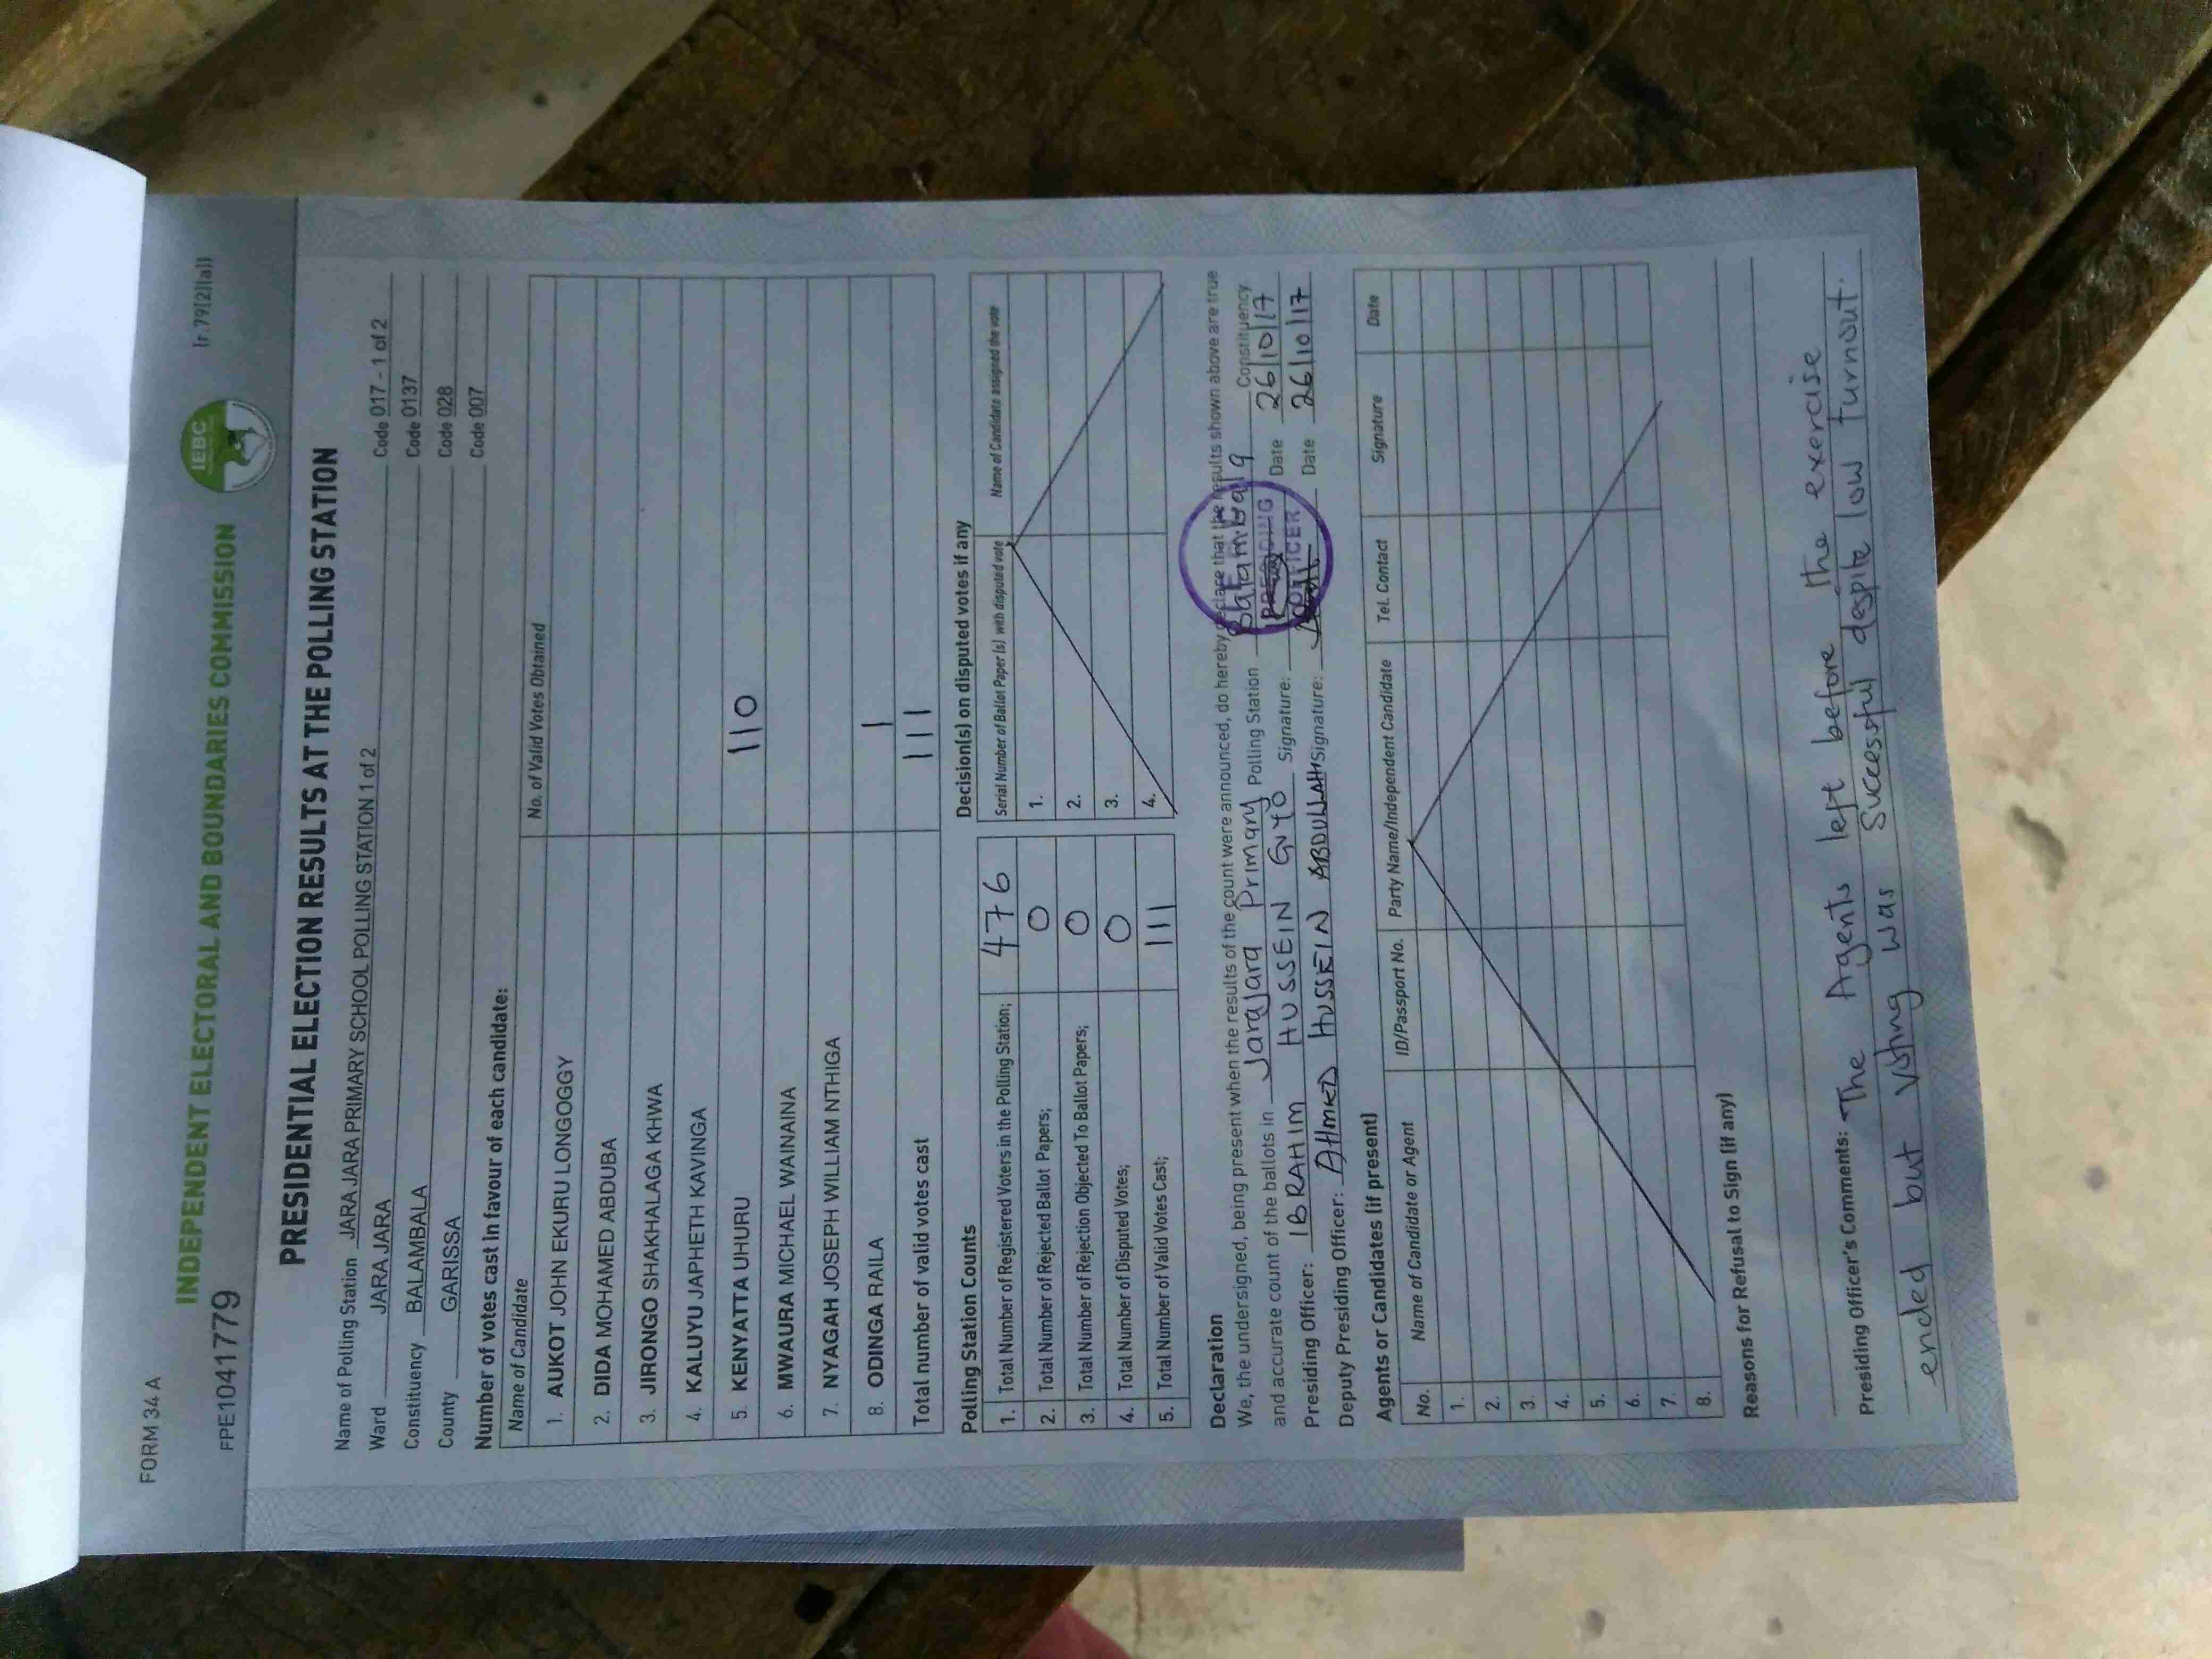 FORM 34 A
(r.79(2)(a))
INDEPENDENT ELECTORAL AND BOUNDARIES COMMISSION
IEBC
FPE1041779
PRESIDENTIAL ELECTION RESULTS AT THE POLLING STATION
Name of Polling Station JARA JARA PRIMARY SCHOOL POLLING STATION 1 of 2 Code 017 - 1 of 2
Ward JARA JARA Code 0137
Constituency BALAMBALA Code 028
County GARISSA Code 007
Number of votes cast in favour of each candidate:
Name of Candidate No. of Valid Votes Obtained
1. AUKOT JOHN EKURU LONGOGGY
2. DIDA MOHAMED ABDUBA
3. JIRONGO SHAKHALAGA KHWA
4. KALUYU JAPHETH KAVINGA
5. KENYATTA UHURU 110
6. MWAURA MICHAEL WAINAINA
7. NYAGAH JOSEPH WILLIAM NTHIGA
8. ODINGA RAILA 1
Total number of valid votes cast 111
Polling Station Counts
1. Total Number of Registered Voters in the Polling Station; 476
2. Total Number of Rejected Ballot Papers; 0
3. Total Number of Rejection Objected To Ballot Papers; 0
4. Total Number of Disputed Votes; 0
5. Total Number of Valid Votes Cast; 111
Decision(s) on disputed votes if any
Serial Number of Ballot Paper (s) with disputed vote Name of Candidate assigned the vote
1.
2.
3.
4.
Declaration
We, the undersigned, being present when the results of the count were announced, do hereby declare that the results shown above are true
and accurate count of the ballots in Jarajara Primary Polling Station Balambala Constituency
Presiding Officer: IBRAHIM HUSSEIN GUYO Signature: Date 26/10/17
Deputy Presiding Officer: AHMED HUSSEIN ABDULLAHI Signature: Date 26/10/17
PRESIDING
OFFICER
Agents or Candidates (if present)
No. Name of Candidate or Agent ID/Passport No. Party Name/Independent Candidate Tel. Contact Signature Date
1.
2.
3.
4.
5.
6.
7.
8.
Reasons for Refusal to Sign (if any)
Presiding Officer's Comments: The Agents left before the exercise
ended but voting was successful despite low turnout.